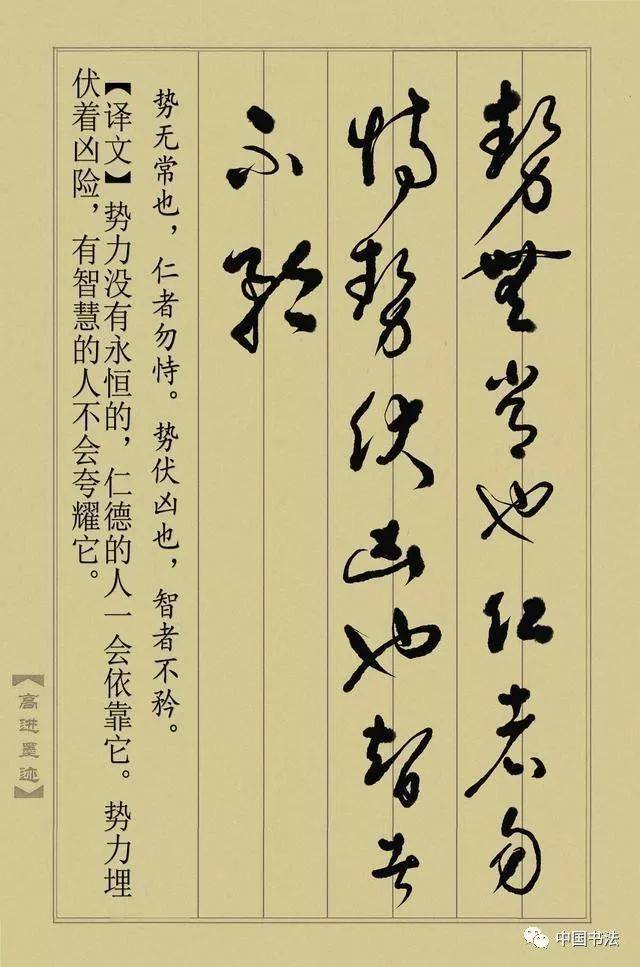 勢無常也仁者勿
恃勢伏凶也智者
不矜
势无常也，仁者勿恃。势伏凶也，智者不矜。
【译文】势力没有永恒的，仁德的人一会依靠它。势力埋
伏着凶险，有智慧的人不会夸耀它。
【高进墨迹】
中国书法